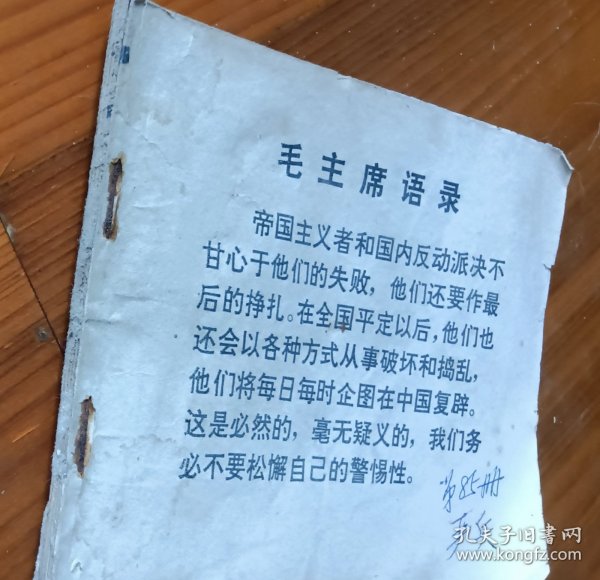 毛主席语录
帝国主义者和国内反动派决不
甘心于他们的失败，他们还要作最
后的挣扎。在全国平定以后，他们也
还会以各种方式从事破坏和捣乱，
他们将每日每时企图在中国复辟。
这是必然的，毫无疑义的，我们务
必不要松懈自己的警惕性。
第85册
孔夫子旧书网
www.kongfz.com